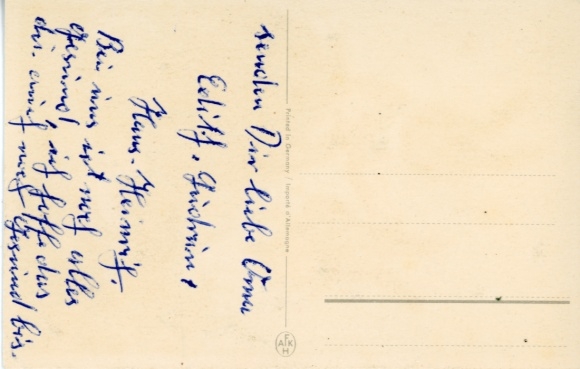 senden Dir liebe Oma
Edith, Gudrun &
Hans-Heinrich.
Bei uns ist noch alles
gesund, ich hoffe das
du auch noch Gesund bis.
Printed in Germany · Importé d'Allemagne
A K H